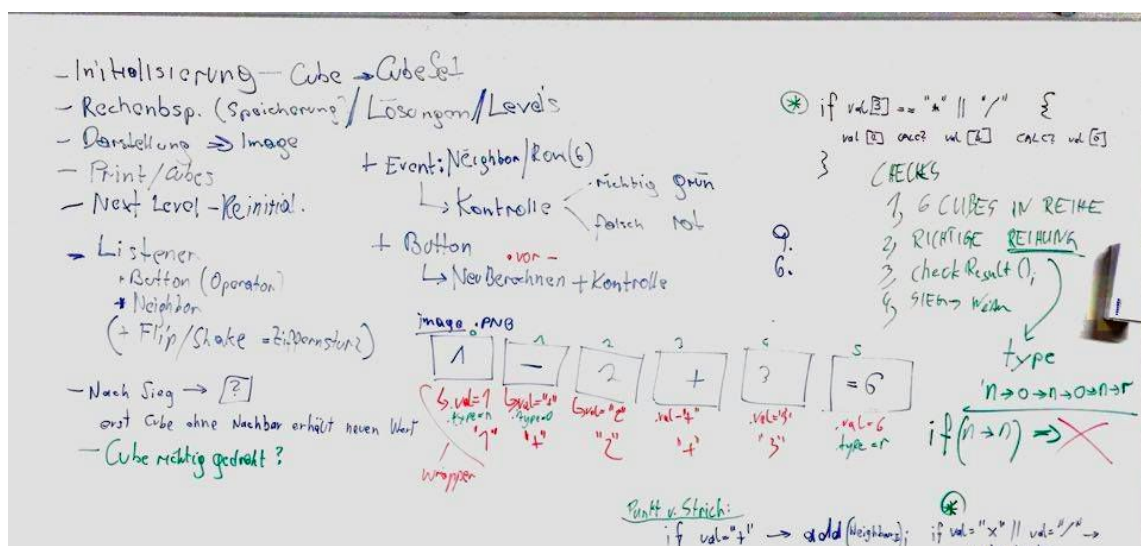 - Initialisierung - Cube → CubeSet
- Rechenbsp. (Speicherung)/Lösungen/Levels
- Darstellung ⇒ Image
- Print/Cubes
- Next Level - Reinitial.
- Listener
+ Button (Operator)
+ Neighbor
(+ Flip/Shake = Ziffernsturz)
- Nach Sieg → ?
erst Cube ohne Nachbar erhält neuen Wert
- Cube richtig gedreht?
+ Event: Neighbor/Row(6)
↳ Kontrolle
richtig grün
falsch rot
+ Button
• vor -
↳ Neu Berechnen + Kontrolle
image .PNG
0 1 2 3 4 5
1 - 2 + 3 = 6
↳ .val=1 ↳ val="+" ↳ val="2" .val="+" .val="3" .val=6
.type=n .type=o type=r
"1" "+" "2" "+" "3"
wrapper
9.
6.
* if val[3] == "*" || "/" {
CALC2 CALC2
}
CHECKS
1, 6 CUBES IN REIHE
2, RICHTIGE REIHUNG
3, checkResult();
4, SIEG → Weiter
type
n→o→n→o→n→r
if (n→n) ⇒ X
Punkt v. Strich:
if val="+" → add(Neighbors);
*
if val="x" || val="/" →